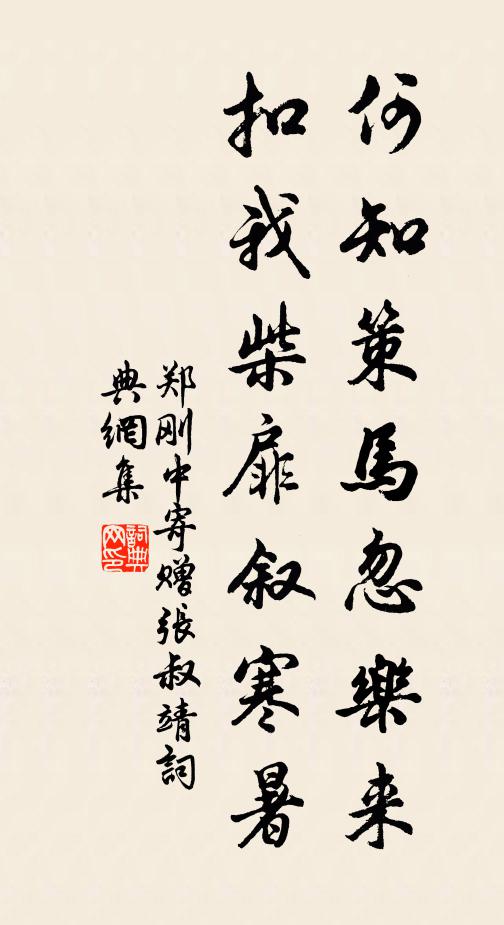 何知策馬忽樂来
扣我柴扉叙寒暑
郑刚中寄赠張叔靖詞
典網集
詞典網印